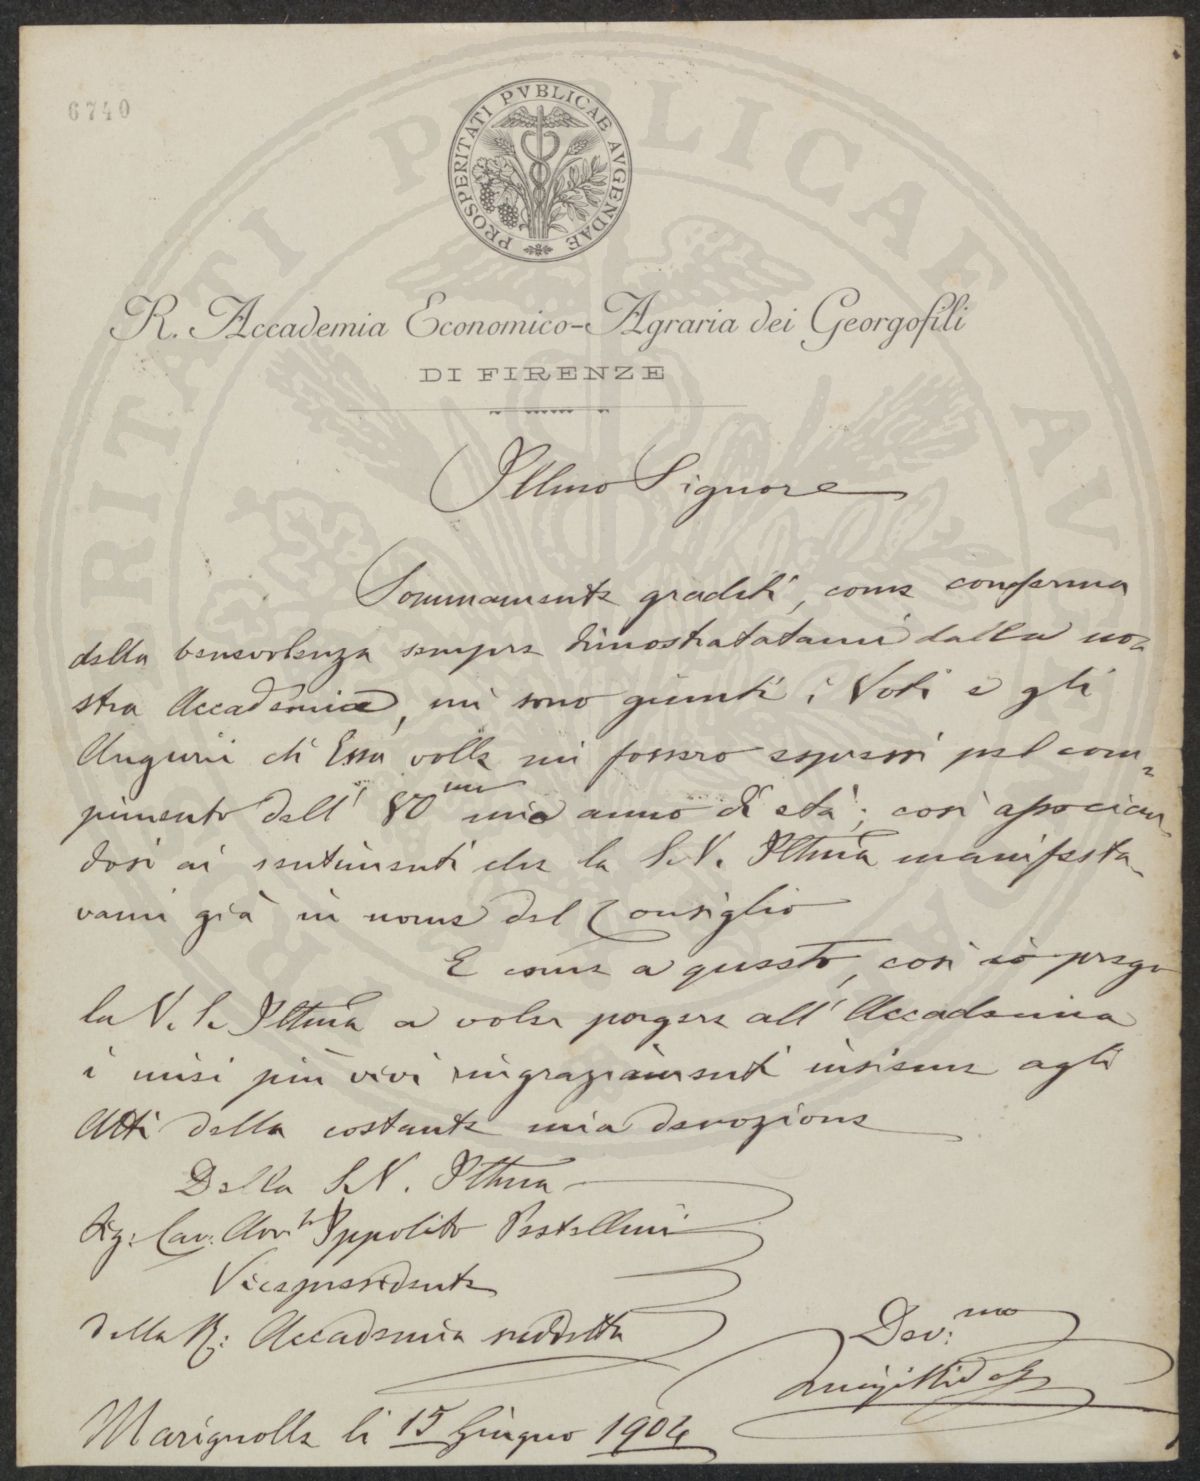 6740
PROSPERITATI PVBLICAE AVGENDAE
R. Accademia Economico-Agraria dei Georgofili
DI FIRENZE
Illmo Signore
Sommamente graditi, come conferma
della benevolenza sempre dimostratatami dalla no-
stra Accademia, mi sono giunti i Voti e gli
Augurii ch'Essa volle mi fossero espressi pel com-
pimento dell' 80mo mio anno di età; così associan-
dosi ai sentimenti che la S.V. Illma manifesta-
vami già in nome del Consiglio
E come a questo, così io prego
la V.S. Illma a voler porgere all'Accademia
i miei più vivi ringraziamenti insieme agli
Atti della costante mia devozione
Della S.V. Illma
Sig: Cav: Avvto Ippolito Pestellini
Vicepresidente
della R: Accademia suddetta
Dev:mo
Luigi
Marignolle li 15 Giugno 1904